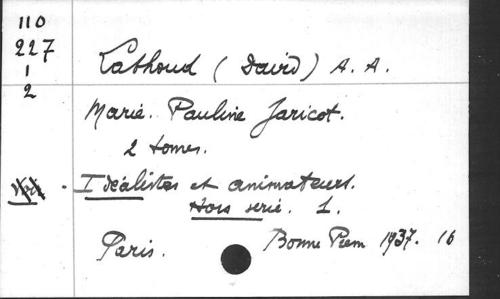 110
227
1
2
Lathoud (David) A. A.
Marie. Pauline Jaricot.
2 tomes.
Idéalistes et animateurs.
Hors serie. 1.
Paris. Bonne Prem 1937. 16